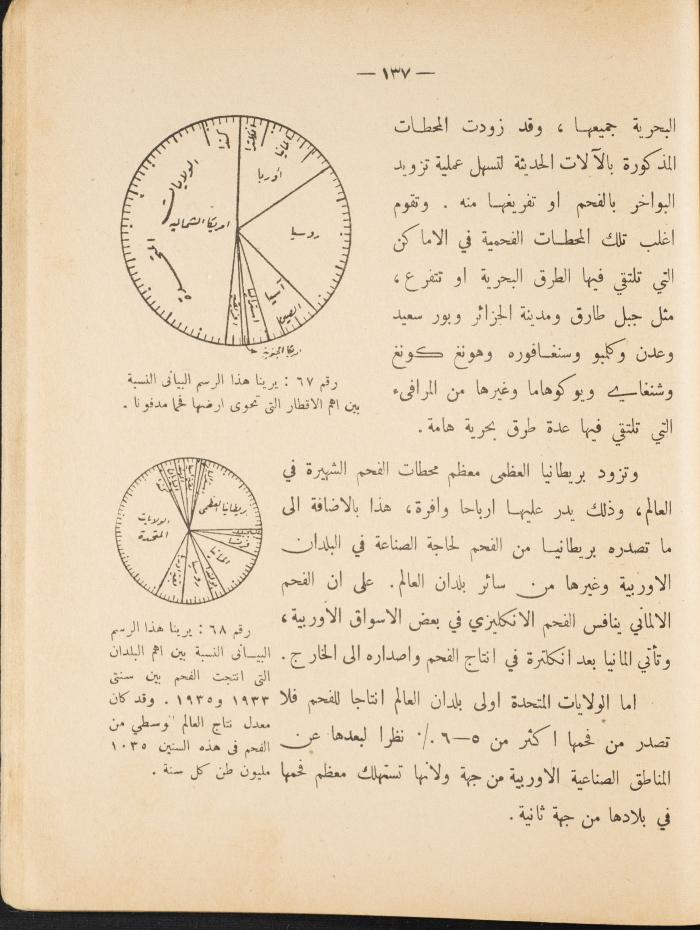 — ١٣٧ —
البحرية جميعها ، وقد زودت المحطات
المذكورة بالآلات الحديثة لتسهل عملية تزويد
البواخر بالفحم او تفريغها منه . وتقوم
اغلب تلك المحطات الفحمية في الاماكن
التي تلتقي فيها الطرق البحرية او تتفرع ،
مثل جبل طارق ومدينة الجزائر وبور سعيد
وعدن وكلمبو وسنغافوره وهونغ كونغ
وشنغاي ويوكوهاما وغيرها من المرافىء
التي تلتقي فيها عدة طرق بحرية هامة .
كندا
انكلترا
المانيا
اوربا
روسيا
الولايات المتحدة
امريكا الشمالية
آسيا
الصين
استراليا
افريقية
امريكا الجنوبية
رقم ٦٧ : يرينا هذا الرسم البيانى النسبة
بين اهم الاقطار التى تحوى ارضها فحما مدفونا .
وتزود بريطانيا العظمى معظم محطات الفحم الشهيرة في
العالم ، وذلك يدر عليها ارباحا وافرة ، هذا بالاضافة الى
ما تصدره بريطانيا من الفحم لحاجة الصناعة في البلدان
الاوربية وغيرها من سائر بلدان العالم . على ان الفحم
الالماني ينافس الفحم الانكليزي في بعض الاسواق الاوربية ،
وتأتي المانيا بعد انكلترة في انتاج الفحم واصداره الى الخارج .
اما الولايات المتحدة اولى بلدان العالم انتاجا للفحم فلا
تصدر من فحمها اكثر من ٥—٦ ٪ نظرا لبعدها عن
المناطق الصناعية الاوربية من جهة ولانها تستهلك معظم فحمها
في بلادها من جهة ثانية .
بريطانيا العظمى
الولايات
المتحدة
فرنسا
المانيا
روسيا
رقم ٦٨ : يرينا هذا الرسم
البيانى النسبة بين اهم البلدان
التى انتجت الفحم بين سنتى
١٩٣٣ و ١٩٣٥ . وقد كان
معدل نتاج العالم الوسطي من
الفحم فى هذه السنين ١٠٣٥
مليون طن كل سنة .